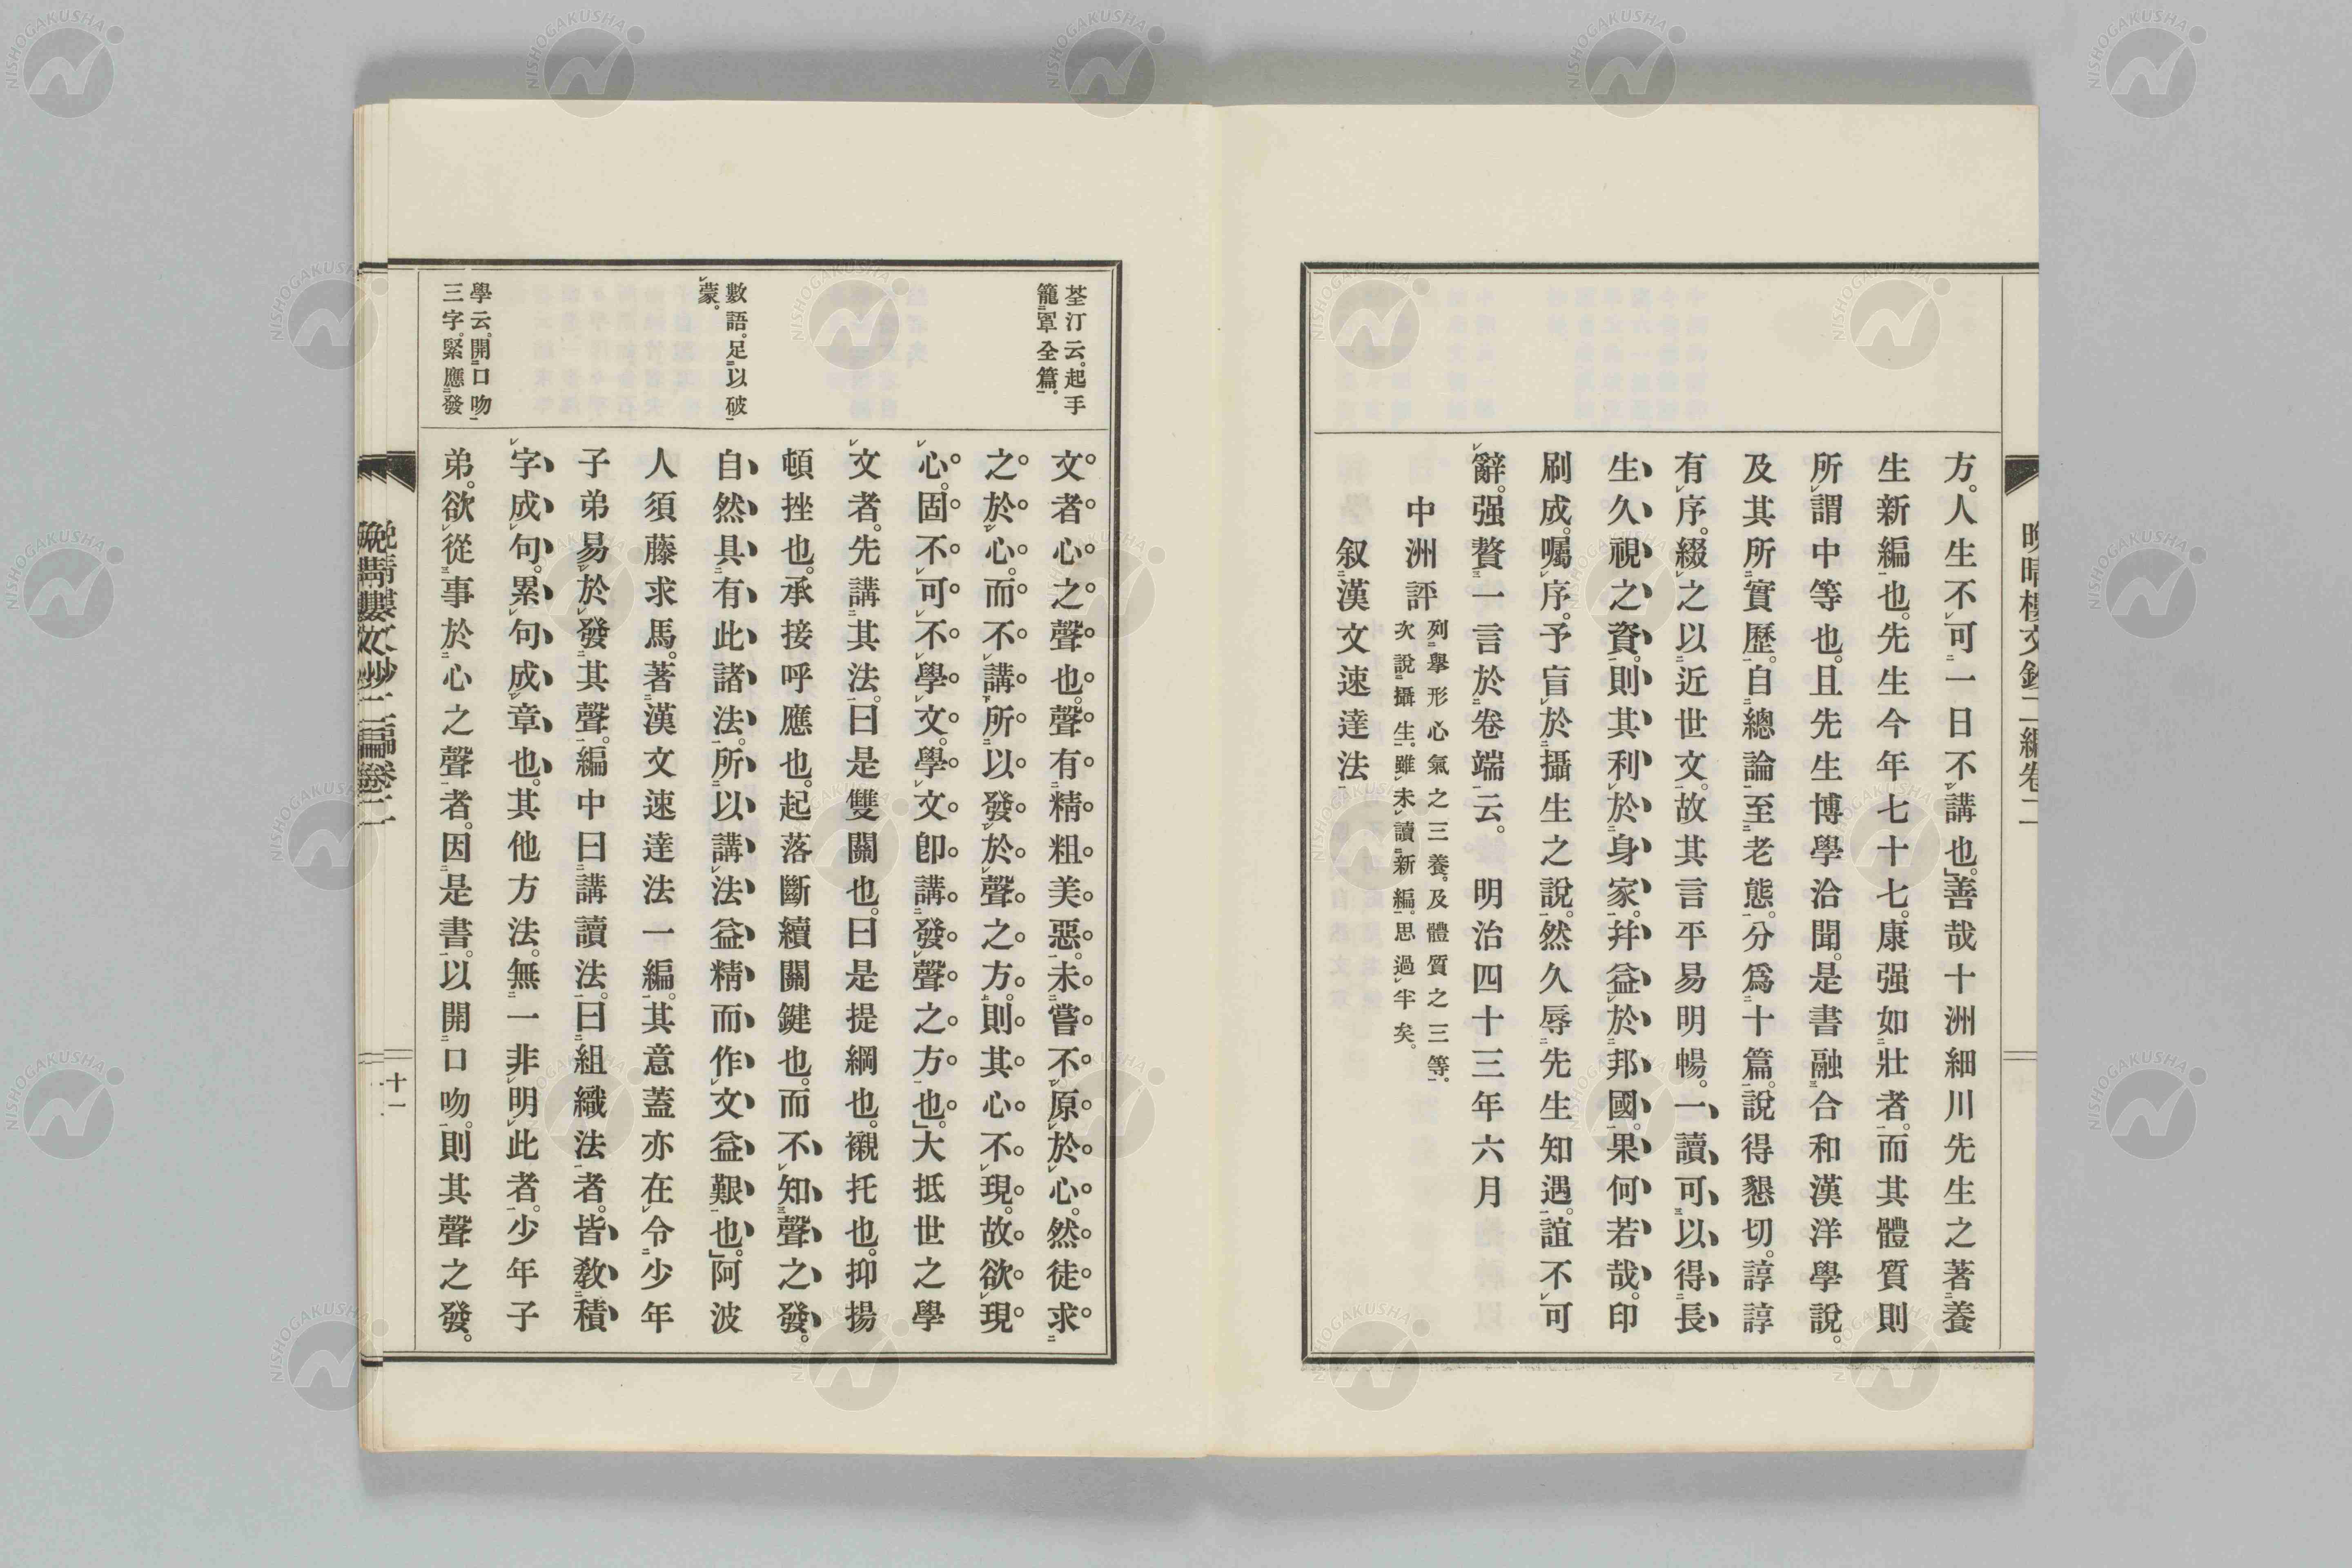 晩晴樓文鈔二編卷二
方。人生不可一日不講也。善哉十洲細川先生之著養
生新編也。先生今年七十七。康强如壯者。而其體質則
所謂中等也。且先生博學洽聞。是書融合和漢洋學說。
及其所實歷。自總論至老態。分爲十篇。說得懇切。諄諄
有序。綴之以近世文。故其言平易明暢。一讀可以得長
生久視之資。則其利於身家。幷益於邦國。果何若哉。印
刷成。囑序。予盲於攝生之說。然久辱先生知遇。誼不可
辭。强贅一言於卷端云。明治四十三年六月
中洲評 列擧形心氣之三養。及體質之三等。
次說攝生。雖未讀新編。思過半矣。
叙漢文速達法
荃汀云。起手
籠罩全篇。
數語。足以破
蒙。
學云。開口吻
三字。緊應發
文者心之聲也。聲有精粗美惡。未嘗不原於心。然徒求
之於心。而不講所以發於聲之方。則其心不現。故欲現
心。固不可不學文。學文卽講發聲之方也。大抵世之學
文者。先講其法。曰是雙關也。曰是提綱也。襯托也。抑揚
頓挫也。承接呼應也。起落斷續關鍵也。而不知聲之發。
自然具有此諸法。所以講法益精而作文益艱也。阿波
人須藤求馬。著漢文速達法一編。其意蓋亦在令少年
子弟易於發其聲。編中曰講讀法。曰組織法者。皆敎積
字成句。累句成章也。其他方法。無一非明此者。少年子
弟。欲從事於心之聲者。因是書。以開口吻。則其聲之發。
十一